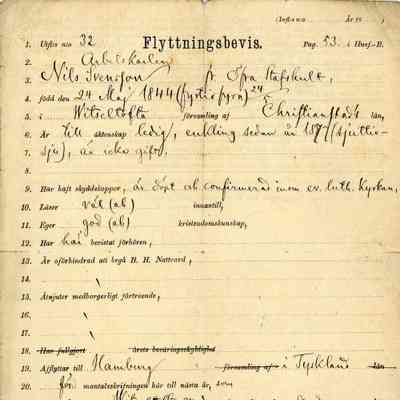 (Införes n:o År 18 )
1. Utfäs n:o 32 Flyttningsbevis. Pag. 53. i Husf.-B.
2. Arbetskarlen
3. Nils Svensson fr
4. född den 24 Maj 1844 (fyrtiofyra) 24/5
5. i Witseltofta församling af Christianstads län,
6. Är till äktenskap ledig, enkling sedan år 1877 (sjuttio-
7. sju), är icke gifts,
8.
9. Har haft skyddskoppor, är döpt och confirmerad inom ev. luth. Kyrkan,
10. Läser väl (ab) innantill,
11. Eger god (ab) kristendomskunskap,
12. Har här bevistat förhören,
13. Är oförhindrad att begå H. H. Nattvard,
14.
15. Åtnjuter medborgerligt förtroende,
16.
17.
18. Har fullgjort årets beväringsskyldighet
19. Afflyttar till Hamburg församling af i Tyskland län
20. för mantalsskrifningen här till nästa år,